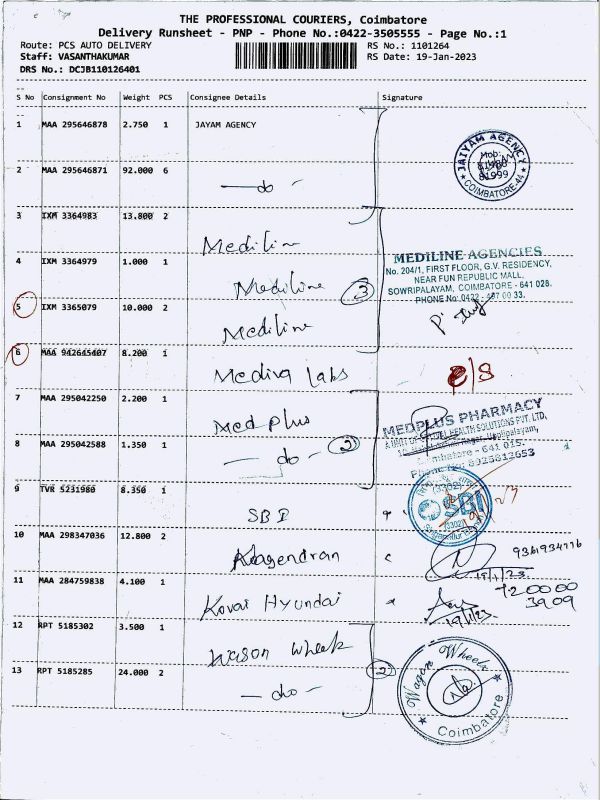 THE PROFESSIONAL COURIERS, Coimbatore
Delivery Runsheet - PNP - Phone No.:0422-3505555 - Page No.:1
Route: PCS AUTO DELIVERY
RS No.: 1101264
Staff: VASANTHAKUMAR
RS Date: 19-Jan-2023
DRS No.: DCJB110126401
S No Consignment No Weight PCS Consignee Details Signature
1 MAA 295646878 2.750 1 JAYAM AGENCY
JAIYAM AGENCY
Mob:
81999
COIMBATORE-44
2 MAA 295646871 92.000 6
— do -
3 IXM 3364983 13.800 2 Mediline
4 IXM 3364979 1.000 1 Mediline
3
MEDILINE AGENCIES
No. 204/1, FIRST FLOOR, G.V. RESIDENCY,
NEAR FUN REPUBLIC MALL,
SOWRIPALAYAM, COIMBATORE - 641 028.
PHONE No: 0422 - 00 33.
5 IXM 3365079 10.000 2 Mediline
6 MAA 942645407 8.200 1 Mediva labs
7 MAA 295042250 2.200 1 Med plus
MEDPLUS PHARMACY
HEALTH SOLUTIONS PVT. LTD,
Coimbatore - 641 015.
8 MAA 295042588 1.350 1 — do - 2
9 TVR 5231980 8.350 1 SBI
SBI
10 MAA 298347036 12.800 2 Nagendran
19/1/23
11 MAA 284759838 4.100 1 Kovai Hyundai
19/1/23
12 RPT 5185302 3.500 1 Wason Wheels
13 RPT 5185285 24.000 2 — do - 2
Wagon Wheels
Coimbatore